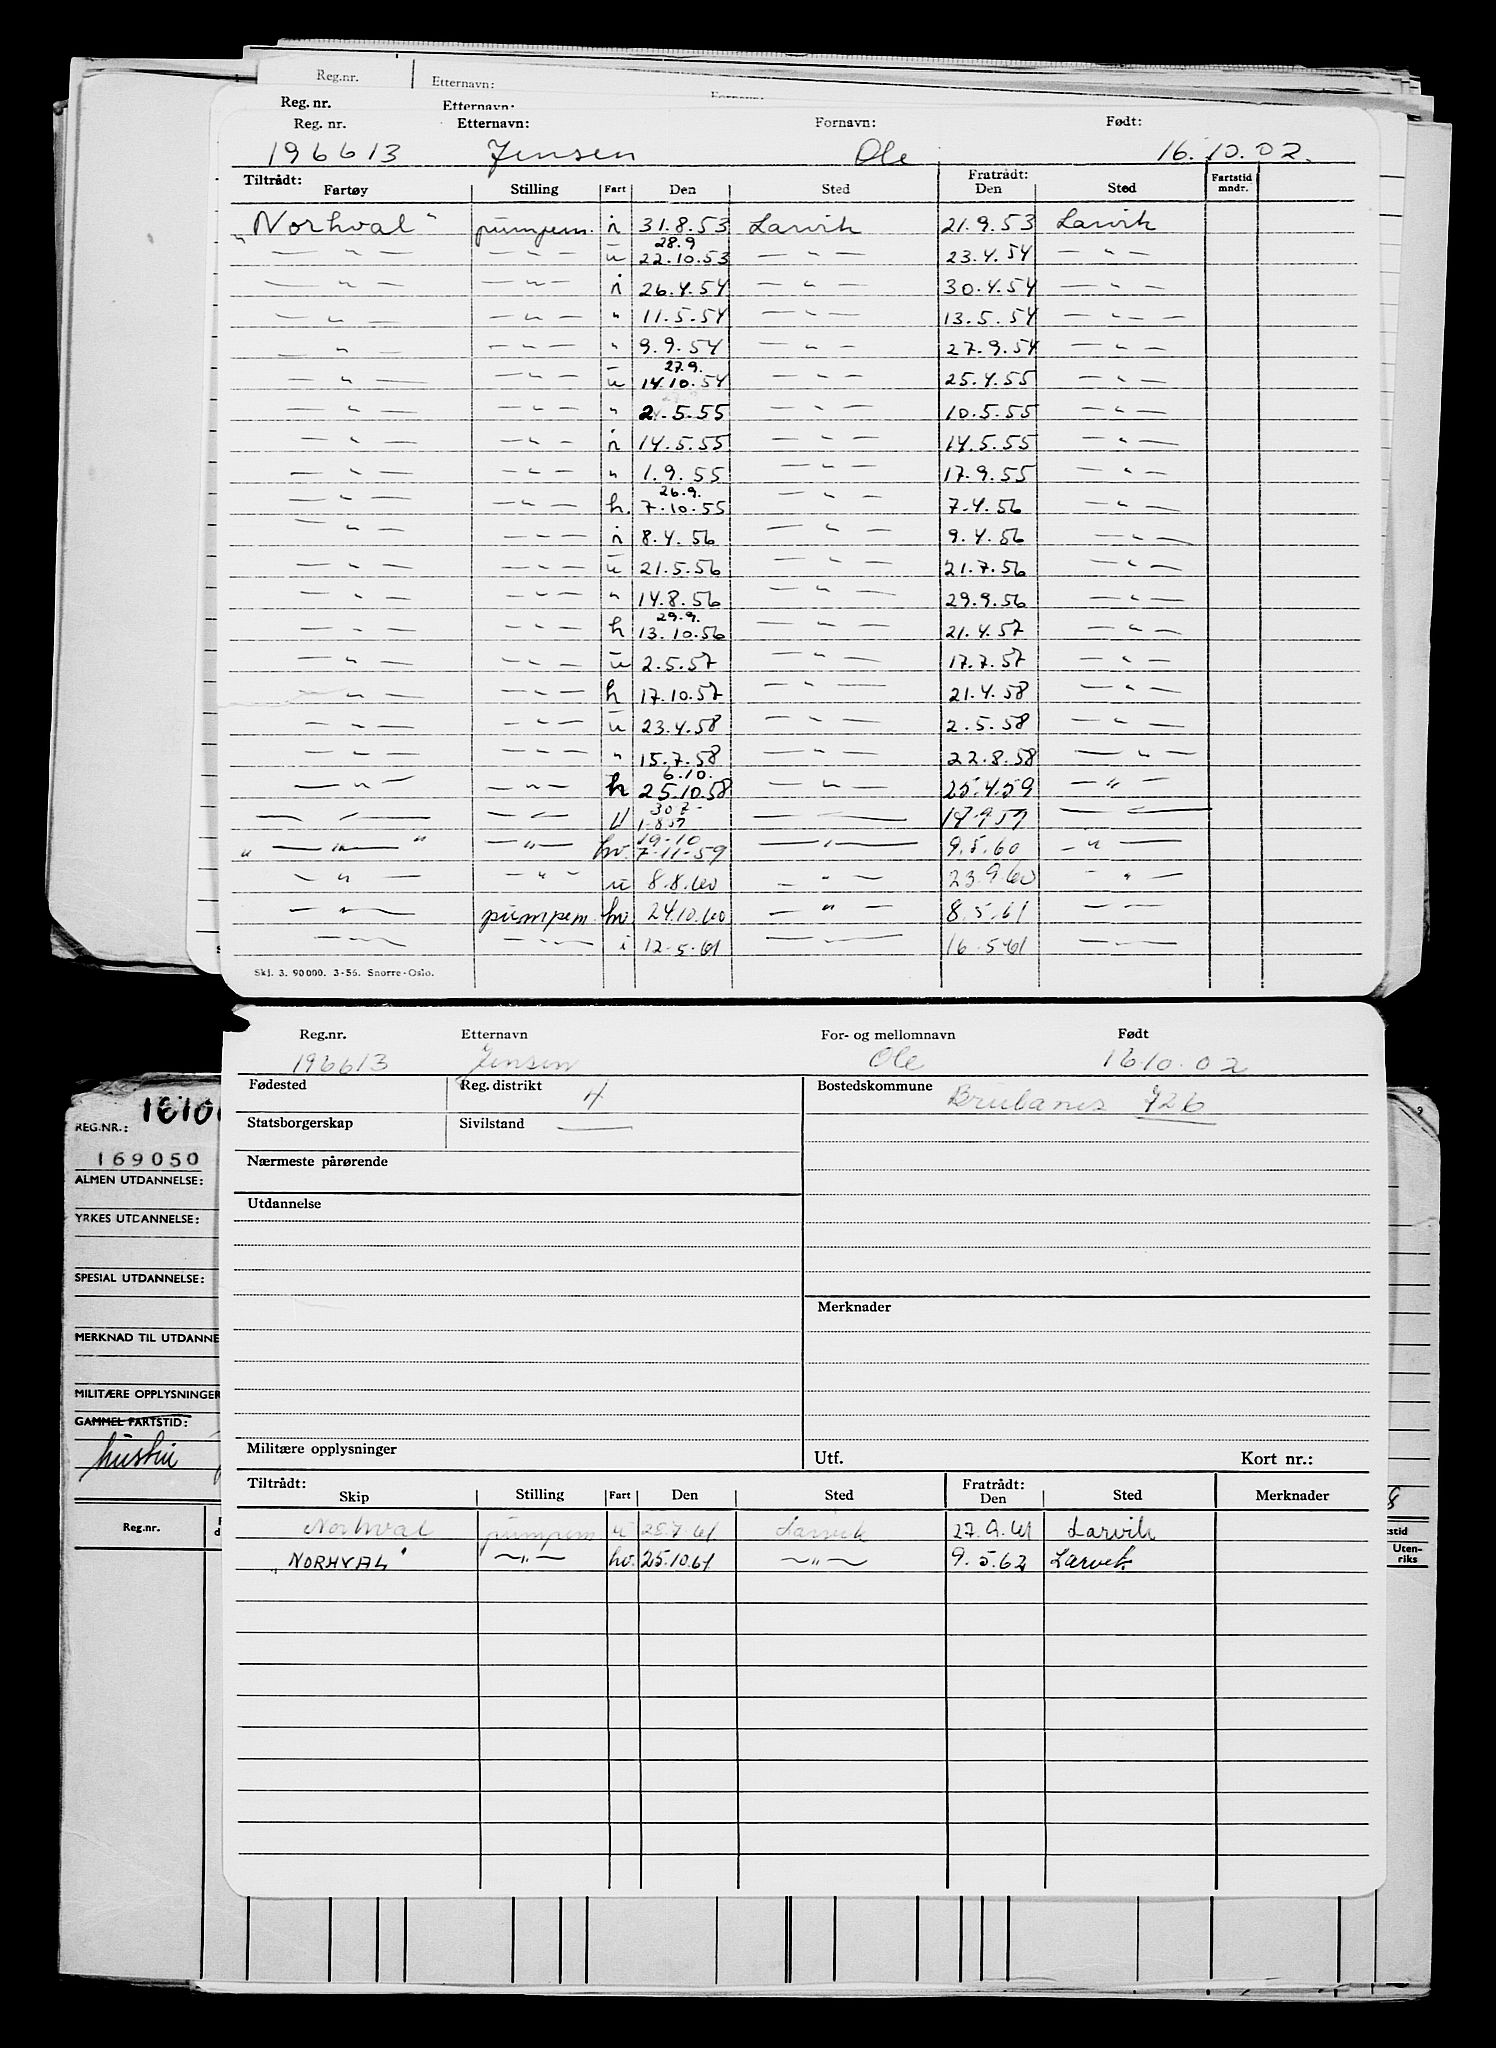 Reg.nr. Etternavn:
Reg. nr. Etternavn:
Reg. nr. Etternavn: Fornavn: Født:
196613 Jensen Ole 16.10.02.
Tiltrådt: Fratrådt:
Fartøy Stilling Fart Den Sted Den Sted Fartstid mndr.
"Norhval" pumpem. i 31.8.53 Larvik 21.9.53 Larvik
— " — — " — u 28.9 22.10.53 — " — 23.4.54 — " —
— " — — " — i 26.4.54 — " — 30.4.54 — " —
— " — — " — " 11.5.54 — " — 13.5.54 — " —
— " — — " — " 9.9.54 — " — 27.9.54 — " —
— " — — " — u 27.9. 14.10.54 — " — 25.4.55 — " —
— " — — " — " 2.5.55 — " — 10.5.55 — " —
— " — — " — i 14.5.55 — " — 14.5.55 — " —
— " — — " — " 1.9.55 — " — 17.9.55 — " —
— " — — " — h. 26.9. 7.10.55 — " — 7.4.56 — " —
— " — — " — i 8.4.56 — " — 9.4.56 — " —
— " — — " — u 21.5.56 — " — 21.7.56 — " —
— " — — " — " 14.8.56 — " — 29.9.56 — " —
— " — — " — h 29.9. 13.10.56 — " — 21.4.57 — " —
— " — — " — u 2.5.57 — " — 17.7.57 — " —
— " — — " — h 17.10.57 — " — 21.4.58 — " —
— " — — " — u 23.4.58 — " — 2.5.58 — " —
— " — — " — " 15.7.58 — " — 22.8.58 — " —
— " — — " — h 6.10. 25.10.58 — " — 25.4.59 — " —
— " — — " — U 1-8 59 — " — 17-9 59 — " —
" — " — " — " — hv. 19-10 7-11-59 — " — 9.5.60 — " —
— " — — " — u 8.8.60 — " — 23.9.60 — " —
— " — pumpem. hv. 24.10.60 — " — 8.5.61 — " —
— " — — " — i 12-5-61 — " — 16-5-61 — " —
Skj. 3. 90000. 3-56. Snorre-Oslo.
Reg.nr. Etternavn For- og mellomnavn Født
196613 Jensen Ole 16.10.02
Fødested Reg. distrikt 4 Bostedskommune 726
Statsborgerskap Sivilstand —
Nærmeste pårørende
Utdannelse
Merknader
Militære opplysninger Utf. Kort nr.:
Tiltrådt: Fratrådt:
Skip Stilling Fart Den Sted Den Sted Merknader
Norhval pumpem u 25.7.61 Larvik 27.9.61 Larvik
"NORHVAL" — " — hv. 25.10.61 — " — 9.5.62 Larvik
REG.NR.:
169050
ALMEN UTDANNELSE:
YRKES UTDANNELSE:
SPESIAL UTDANNELSE:
MERKNAD TIL UTDANNE
MILITÆRE OPPLYSNINGER
GAMMEL FARTSTID:
Reg.nr.
Uten-
riks